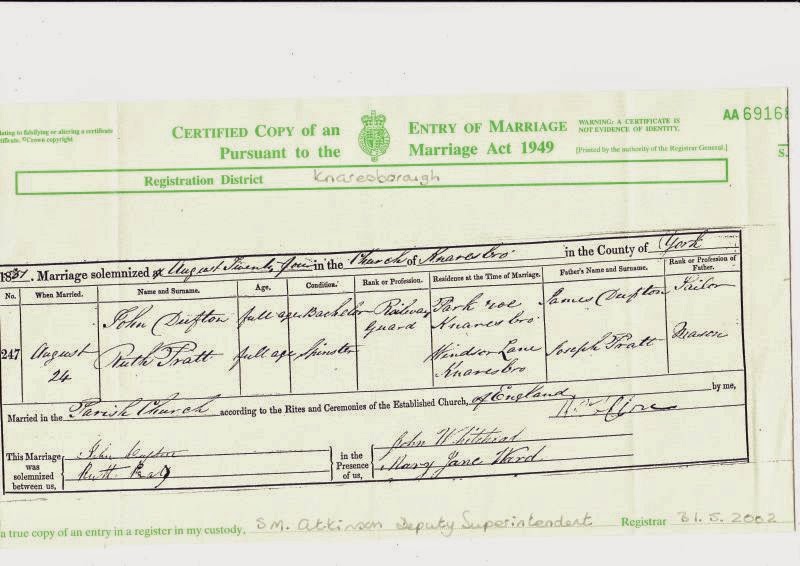 lating to falsifying or altering a certificate
rtificate. ©Crown copyright
CERTIFIED COPY of an ENTRY OF MARRIAGE
Pursuant to the Marriage Act 1949
WARNING: A CERTIFICATE IS
NOT EVIDENCE OF IDENTITY.
[Printed by the authority of the Registrar General.]
AA 69168
S.
Registration District Knaresborough
. Marriage solemnized August Twenty four in the Church of Knaresbro' in the County of York
No. When Married. Name and Surname. Age. Condition. Rank or Profession. Residence at the Time of Marriage. Father's Name and Surname. Rank or Profession of Father.
John Dufton full age Bachelor Railway Guard Park roe Knaresbro James Dufton Tailor
247 August 24
Ruth Pratt full age Spinster Windsor Lane Knaresbro Joseph Pratt Mason
Married in the Parish Church according to the Rites and Ceremonies of the Established Church, of England by me,
This Marriage was solemnized between us, John Dufton
Ruth
in the Presence of us, John Whitehead
Mary Jane Ward
a true copy of an entry in a register in my custody, S M. Atkinson Deputy Superintendent Registrar 31. 5. 2002